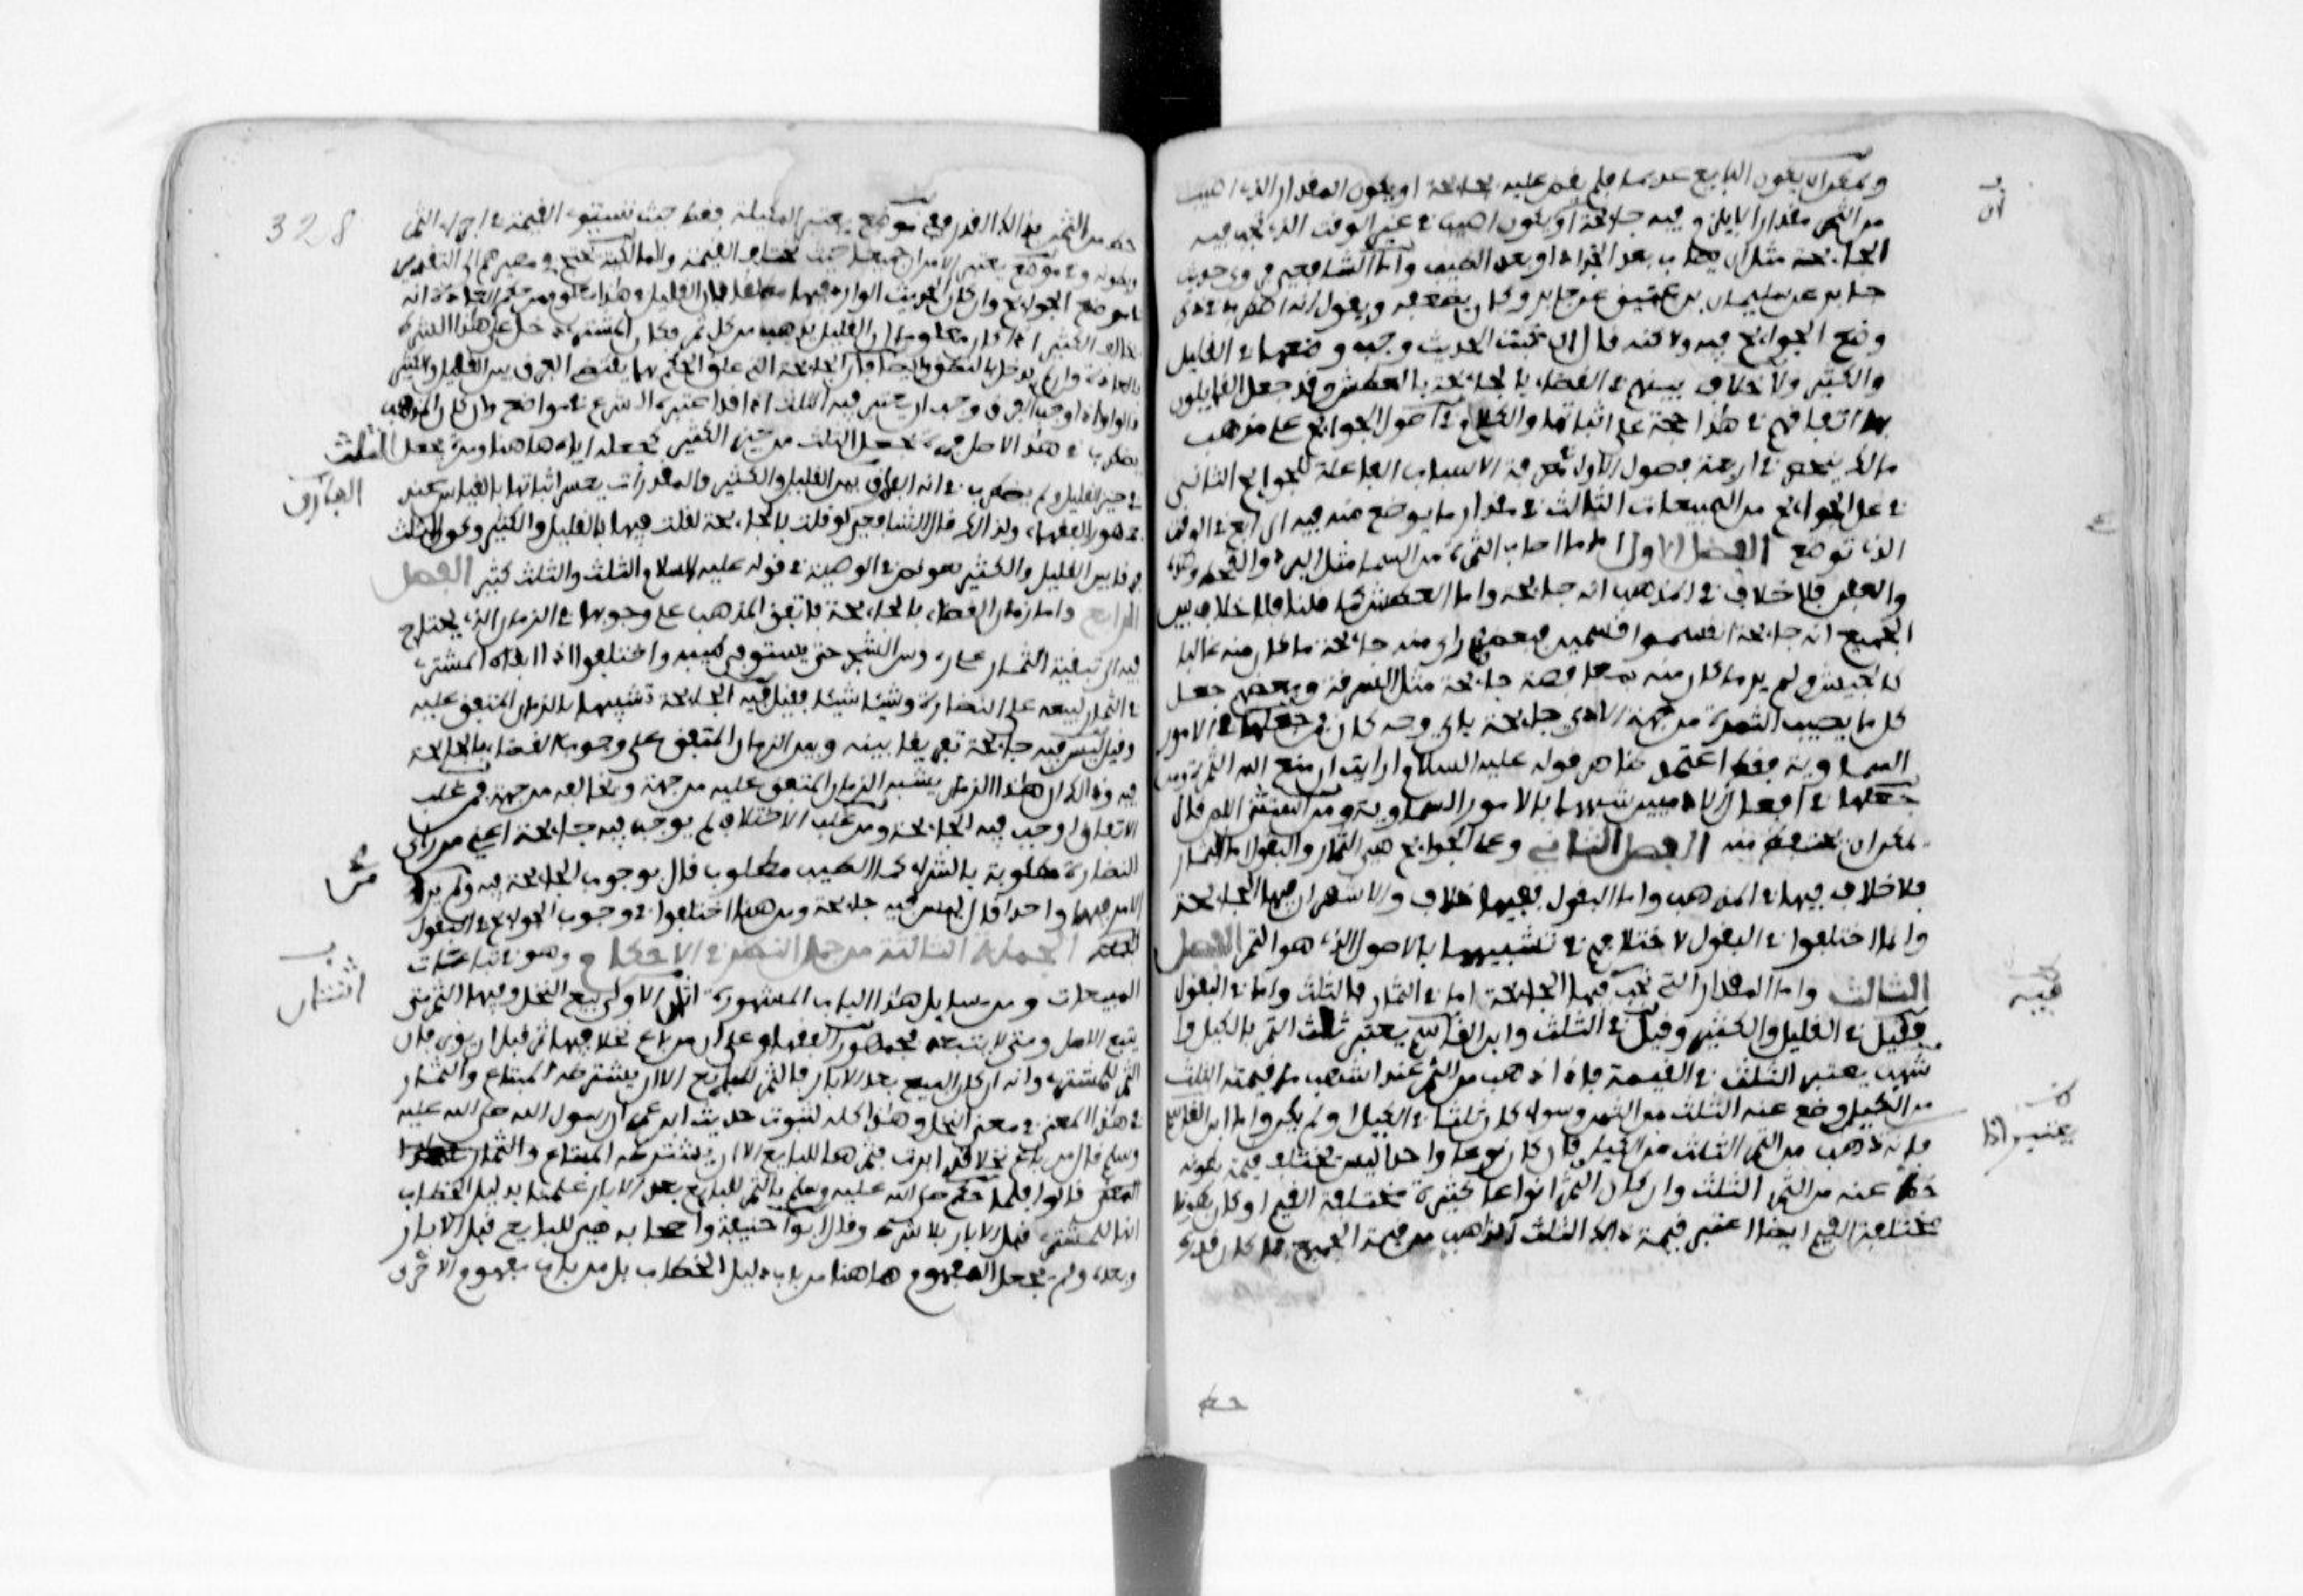 ويمكن ان يكون البايع عديما فلم يقض عليه بجايحة او يكون المقدار الذي اصيب
من الثمر مقدارا لا يلزم فيه جايحة او يكون اصيب في غير الوقت الذي تجب فيه
الجايحة مثل ان يصاب بعد الجذاذ او بعد الطيب واما الشافعي فروى حديث
جابر عن سليمان بن عتيق عن جابر وكان يضعفه ويقول انه اضطرب في ذكر
وضع الجوايح فيه ولاكنه قال ان ثبت الحديث وجب وضعها في القليل
والكثير ولا خلاف بينهم في القضاء بالجايحة بالعطش وقد جعل القايلون
بها اتفاقهم في هذا حجة على اثباتها والكلام في اصول الجوايح على مذهب
مالك ينحصر في اربعة فصول الاول في معرفة الاسباب الفاعلة للجوايح الثاني
في محل الجوايح من المبيعات الثالث في مقدار ما يوضع منه فيه الرابع في الوقت
الذي توضع الفصل الاول اما ما اصاب الثمرة من السما مثل البرد والقحط وضده
والعفن فلا خلاف في المذهب انه جايحة واما العطش كما قلنا فلا خلاف بين
الجميع انه جايحة انقسموا قسمين فبعضهم راى منه جايحة ما كان منه غالبا
كالجيش ولم ير ما كان منه بمعافصة جايحة مثل السرقة وبعضهم جعل
كل ما يصيب الثمرة من جهة الادمي جايحة باي وجه كان فمن جعلها في الامور
السماوية فقط اعتمد ظاهر قوله عليه السلام ارايت ان منع الله الثمرة ومن
جعلها في افعال الادميين شبهها بالامور السماوية ومن استثنى اللص قال
يمكن ان يتحفظ منه الفصل الثاني ومحل الجوايح هي الثمار والبقول فاما الثمار
فلا خلاف فيها في المذهب واما البقول ففيها خلاف والاشهر ان فيها الجايحة
وانما اختلفوا في البقول لاختلافهم في تشبيهها بالاصول الذي هو الثمر الفصل
الثالث واما المقدار الذي تجب فيه الجايحة اما في الثمار فالثلث واما في البقول
فقيل في القليل والكثير وقيل في الثلث وابن القاسم يعتبر ثلث الثمر بالكيل وا
شهب يعتبر الثلث في القيمة فاذا ذهب من الثمر عند اشهب ما قيمته الثلث
من الكيل وضع عنه الثلث من الثمن وسوا كان ثلثا في الكيل او لم يكن واما ابن القاسم
فانه اذا ذهب من الثمر الثلث من الكيل فان كان نوعا واحدا ليس تختلف قيمة بطونه
حط عنه من الثمن الثلث وان كان الثمر انواعا كثيرة مختلفة القيم او كان بطونا
مختلفة القيم ايضا اعتبر قيمة ذلك الثلث الذاهب من قيمة الجميع فما كان قدره
حط
حط من الثمن بذلك القدر ففي موضع يعتبر المكيلة فقط حيث تستوي القيمة في اجزاء الثمر
وبطونه وفي موضع يعتبر الامرين جميعا حيث تختلف القيمة والمالكية يحتجون في مصيرهم الى التقدير
في وضع الجوايح وان كان الحديث الوارد فيها مطلقا بان القليل في هذا معلوم من حكم العادة انه
يخالف الكثير اذا كان معلوما ان القليل يذهب من كل ثمر فكان المشتري دخل على هذا الشرط
بالعادة وان لم يدخل بالنطق وايضا فان الجايحة التي علق الحكم بها يقتضي الفرق بين القليل والكثير
قالوا واذا وجب الفرق وجب ان يعتبر فيه الثلث اذ قد اعتبره الشرع في مواضع وان كان المذهب
يضطرب في هذا الاصل فمرة يجعل الثلث من حيز الكثير كجعله اياه هاهنا ومرة يجعل الثلث
في حيز القليل ولم يضطرب في انه الفرق بين القليل والكثير والمقدرات يعسر اثباتها بالقياس عند
جمهور الفقهاء ولذلك قال الشافعي لو قلت بالجايحة لقلت فيها بالقليل والكثير وكون الثلث
فرقا بين القليل والكثير هو نص في الوصية في قوله عليه السلام الثلث والثلث كثير الفصل
الرابع واما زمان القضاء بالجايحة فاتفق المذهب على وجوبها في الزمان الذي يحتاج
فيه الى تبقية الثمار على رءوس الشجر حتى يستوفى طيبه واختلفوا اذا ابقاه المشتري
في الثمار ليبيعه على النضارة وشيئا شيئا فقيل فيه الجايحة تشبيها بالزمان المتفق عليه
وقيل ليس فيه جايحة تفريقا بينه وبين الزمان المتفق على وجوب القضاء بالجايحة
فيه وذلك ان هذا الزمان يشبه الزمان المتفق عليه من جهة ويخالفه من جهة فمن غلب
الاتفاق اوجب فيه الجايحة ومن غلب الاختلاف لم يوجب فيه جايحة اعني من راى
النضارة مطلوبة بالشراء كما الطيب مطلوب قال بوجوب الجايحة فيه ومن لم ير
الامر فيهما واحدا قال ليس فيه جايحة ومن هنا اختلفوا في وجوب الجوايح في البقول
الجملة الثالثة من جمل النظر في الاحكام وهو في تابعات
المبيعات ومن مسايل هذا الباب المشهورة اثنتان الاولى بيع النخل وفيها الثمر متى
يتبع الاصل ومتى لا يتبعه فجمهور الفقهاء على ان من باع نخلا فيها ثمر قبل ان يوبر فان
الثمر للمشتري وانه ان كان البيع بعد الابار فالثمر للبايع الا ان يشترطه المبتاع والثمار
في هذا المعنى في معنى النخل وهذا كله لثبوت حديث ابن عمر ان رسول الله صلى الله عليه
وسلم قال من باع نخلا قد ابرت فثمرها للبايع الا ان يشترطه المبتاع والثمار
قالوا فلما حكم صلى الله عليه وسلم بالثمر للبايع بعد الابار علمنا بدليل الخطاب
انها للمشتري قبل الابار بلا شرط وقال ابو حنيفة واصحابه هي للبايع قبل الابار
وبعده ولم يجعل المفهوم هاهنا من باب دليل الخطاب بل من باب مفهوم الاحرى
328